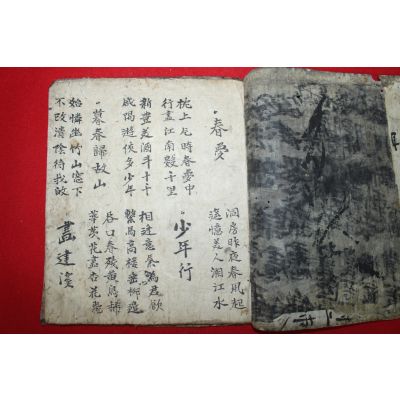 春夢
洞房昨夜春風起
遙憶美人湘江水
枕上片時春夢中
行盡江南數千里
少年行
新豊美酒斗十千
咸陽遊俠多少年
相逢意氣爲君飮
繫馬高樓垂柳邊
暮春歸故山
谷口春殘黃鳥稀
辛夷花盡杏花飛
始憐幽竹山窓下
不改淸陰待我歸
畵建溪